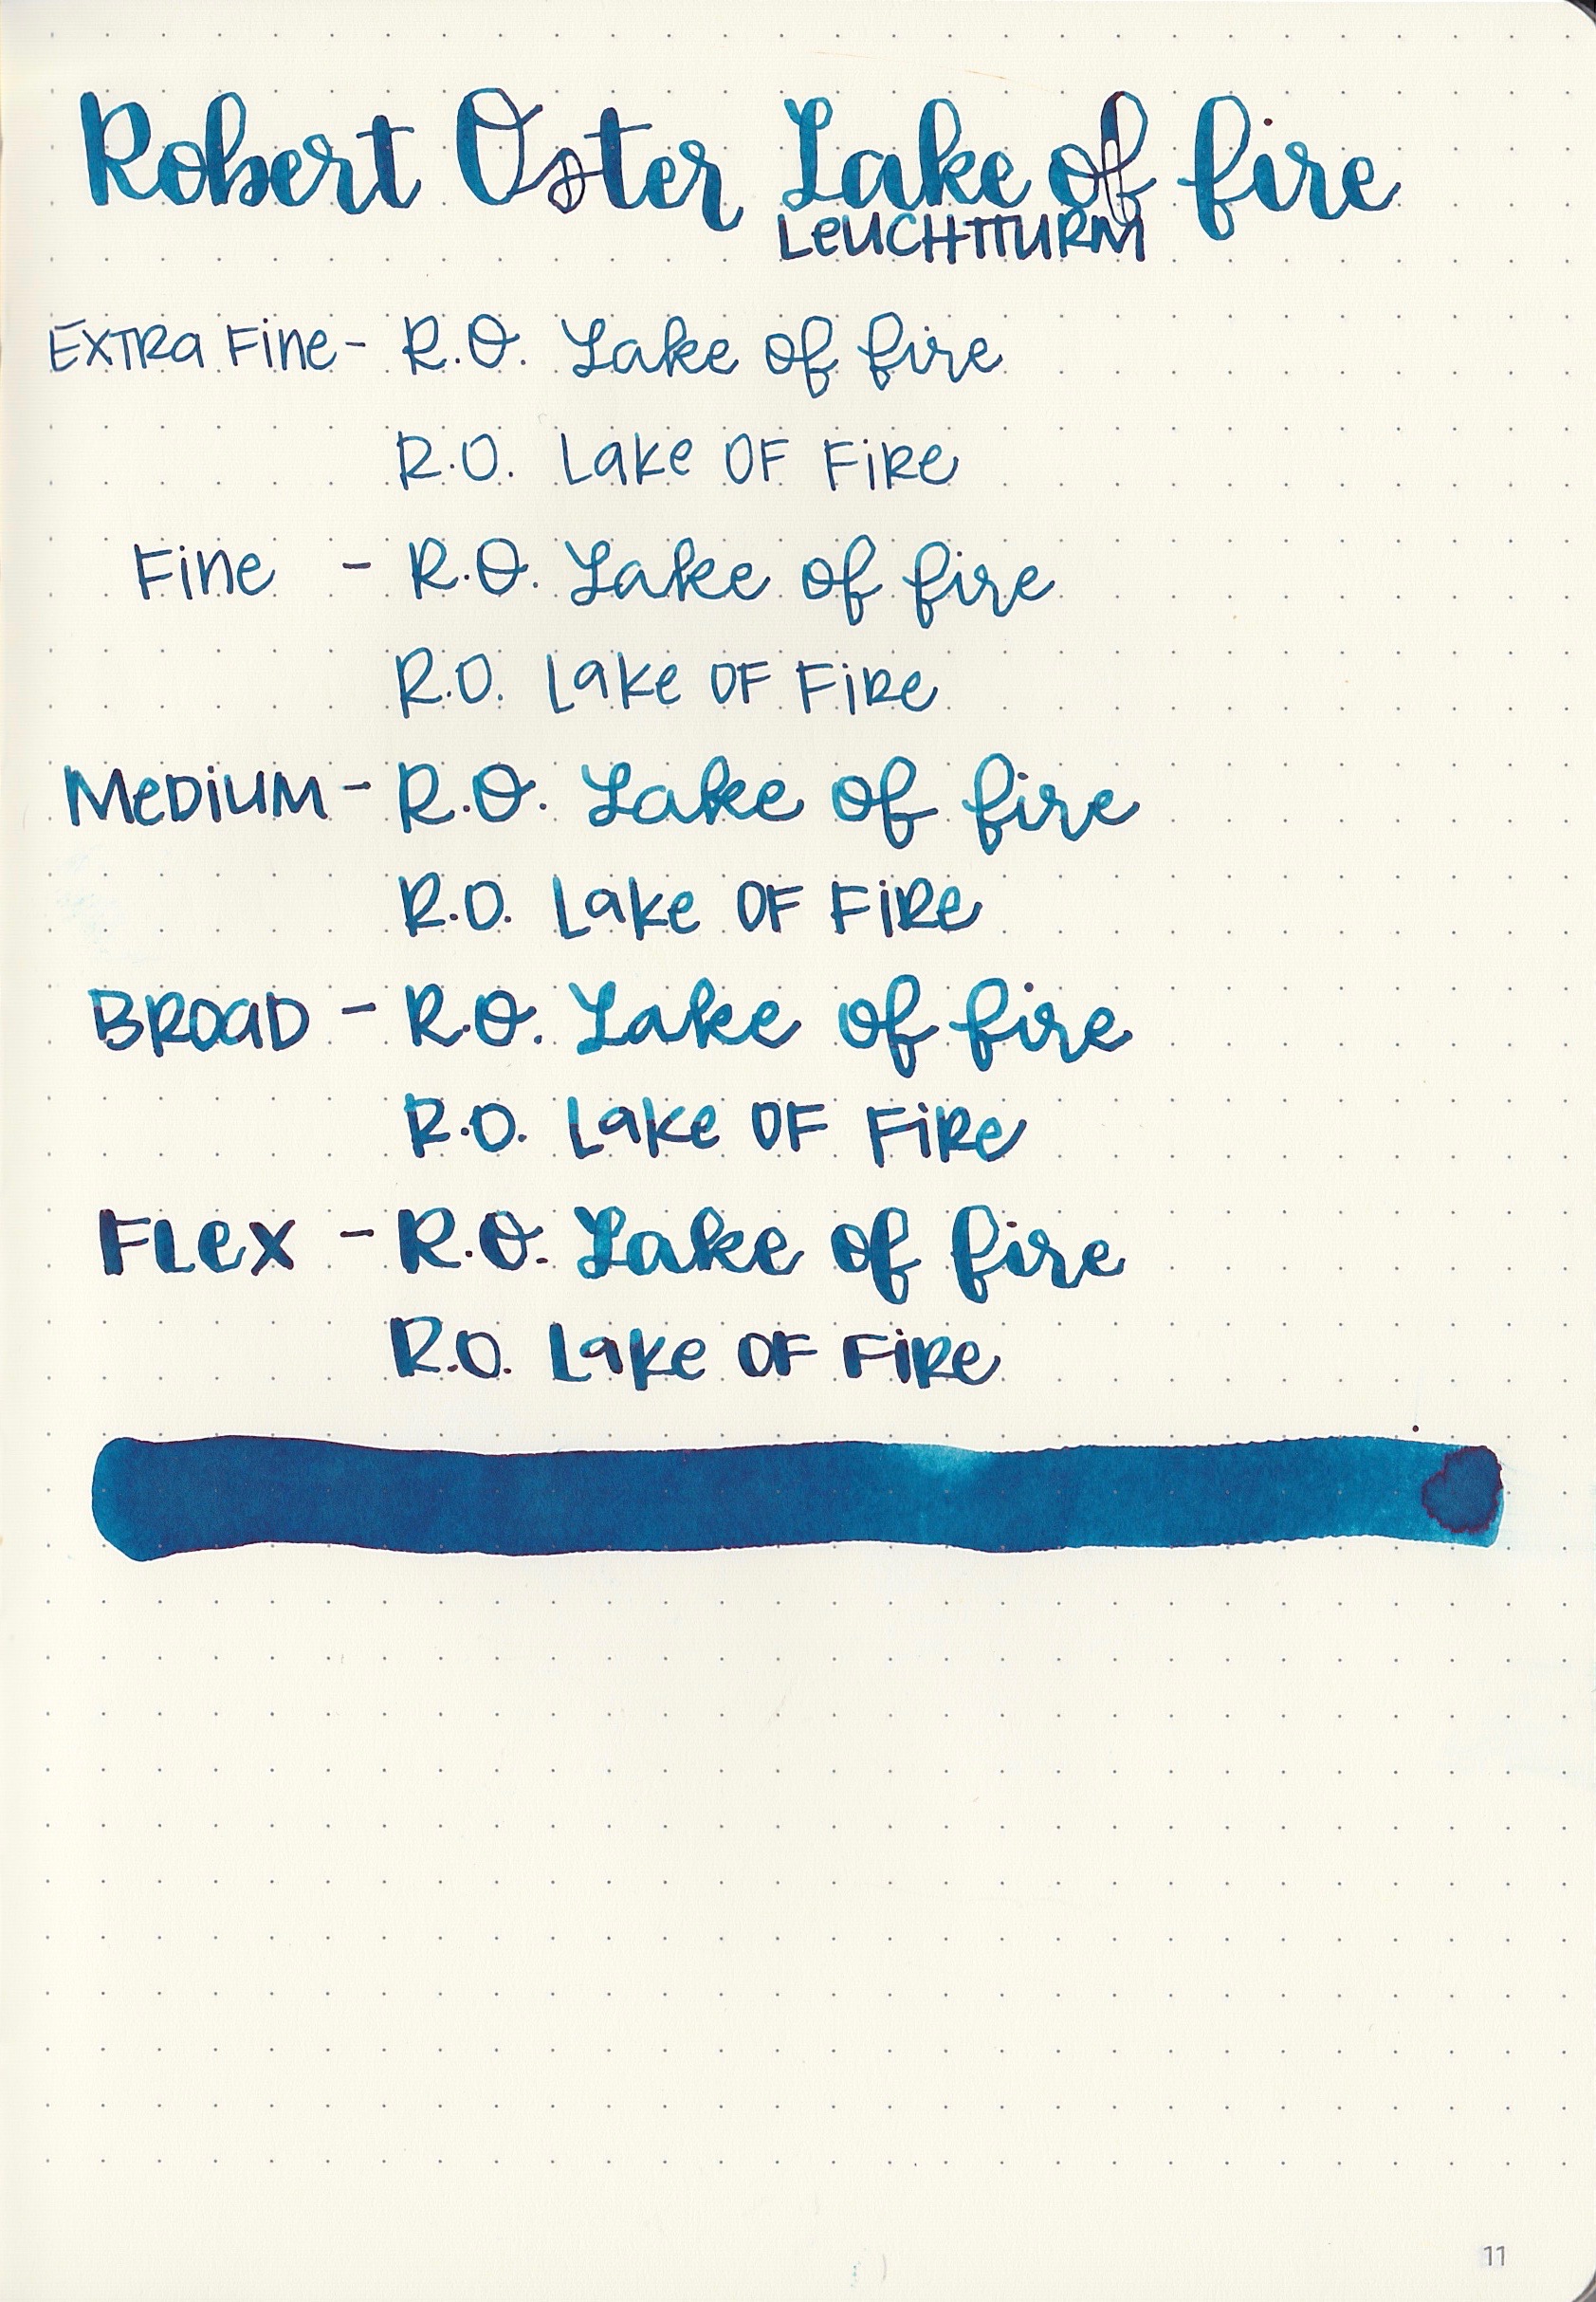 Robert Oster Lake of fire
LeUCHTTURM
EXTRa Fine - R.O. Lake of fire
R.O. Lake OF FiRe
Fine - R.O. Lake of fire
R.O. Lake OF FiRe
MeDiUM - R.O. Lake of fire
R.O. Lake OF FiRe
BROaD - R.O. Lake of fire
R.O. Lake OF FiRe
FLex - R.O. Lake of fire
R.O. Lake OF FiRe
11